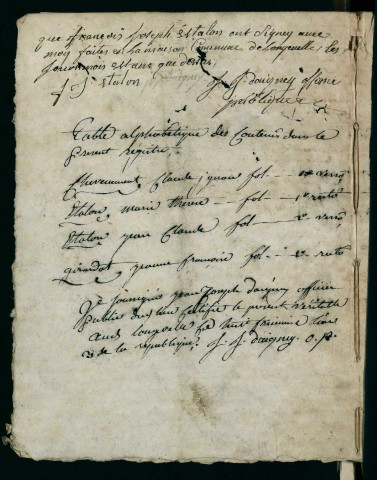 que françois Joseph Estalon ont Signey avec
moy faites en la maison Commune de Longevelle, les
jour mois et ans que dessus,
f J Stalon J. J. daigney officie
publique
Table alphabetique des Contenus dans le
present registre
Chevremont Claude ignace fol. verso
Etalon, marie therese fol recto
Etalon jean Claude fol verso
girardot jeanne francoise fol. recto
Je soussignez jean Joseph daigney officier
publie dudit lieu certifie le present veritable
audit longevelle le huit frimaire l'an
de la republique. J. J. daigney o. p.